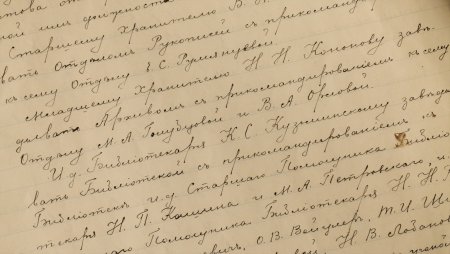 ной или должност
Старшему Хранителю В.
вать Отделом Рукописей съ прикоманди
къ сему Отделу Е. С. Румянцевой.
Младшему Хранителю Н. Н. Кононову заве-
дывать Архивомъ съ прикомандированіемъ къ сему
Отделу М. А. Голубцовой и В. А. Орловой.
И. д. Библіотекаря К. С. Кузьминскому заведы
вать Библіотекой съ прикомандированіемъ къ
Библіотекѣ и. д. Старшаго Помощника Библіо
текаря Н. П. Кашина и М. А. Петровскаго, и.
шаго Помощника Библіотекаря Н. Н.
вичъ, О. В. Т. И.
вой, Н. В. Лобанов